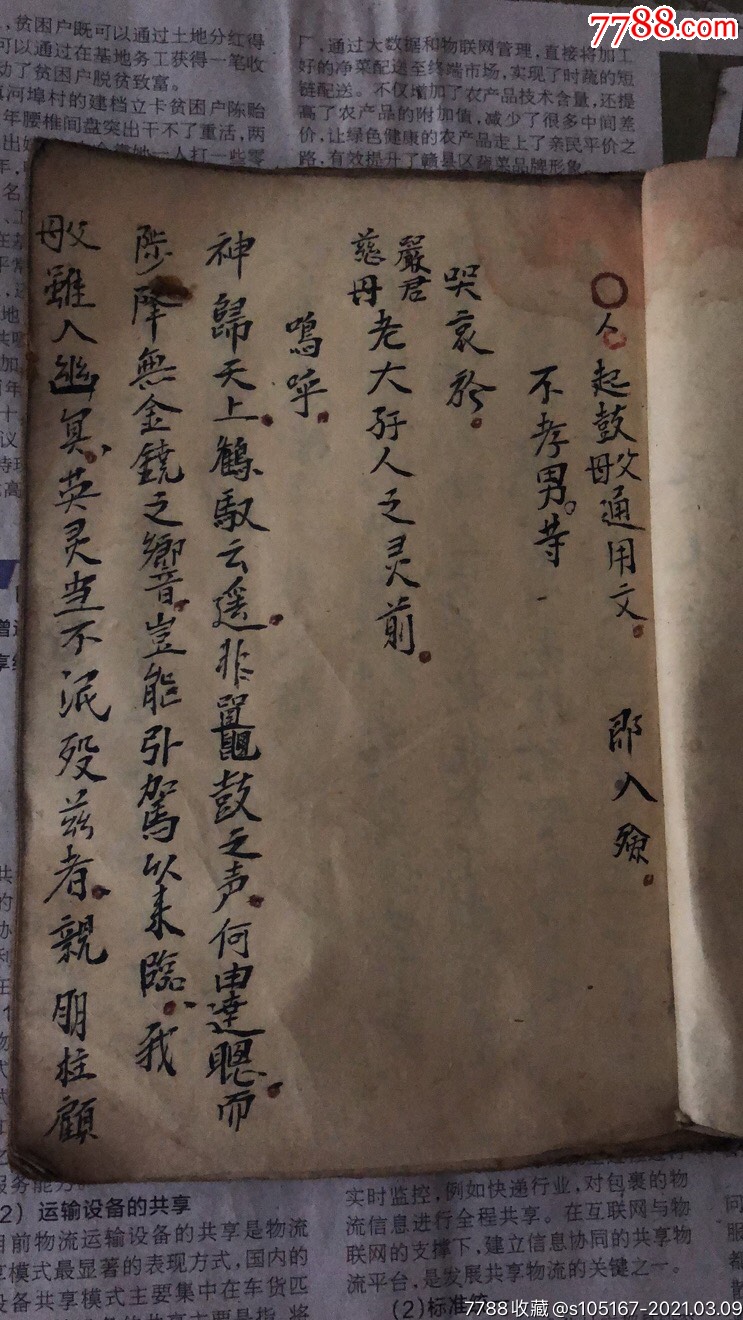 7788.com
，贫困户既可以通过土地分红得
可以通过在基地务工获得一笔收
动了贫困户脱贫致富。
河埠村的建档立卡贫困户陈贻
年腰椎间盘突出干不了重活，两
一人打一些零
厂，通过大数据和物联网管理，直接将加工
好的净菜配送至终端市场，实现了时蔬的短
链配送。不仅增加了农产品技术含量，还提
高了农产品的附加值，减少了很多中间差
价，让绿色健康的农产品走上了亲民平价之
路，有效提升了赣县区蔬菜品牌形象。
〇人起鼓父母通用文。 即入殮。
不孝男。等
哭哀於。
嚴君慈母老大孺人之灵前。
嗚呼。
神歸天上。鶴馭云遥。非鼉鼓之声。何由達聰。而
陟降無金鐃之響。豈能引駕以来臨。我
父母雖入幽冥。英灵当不泯殁。兹者。親朋柱顧
2）运输设备的共享
目前物流运输设备的共享是物流
享模式最显著的表现方式，国内的
设备共享模式主要集中在车货匹
实时监控，例如快递行业，对包裹的物
流信息进行全程共享。在互联网与物
联网的支撑下，建立信息协同的共享物
流平台，是发展共享物流的关键之一。
（2）标准
7788收藏@s105167-2021.03.09